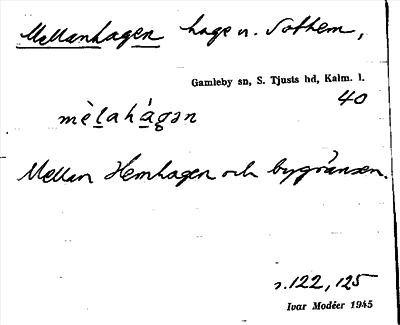 Mellanhagen hage n. Sothem,
Gamleby sn, S. Tjusts hd, Kalm. l.
40
mèlahágən
Mellan Hemhagen och bygränsen.
s. 122, 125
Ivar Modéer 1945